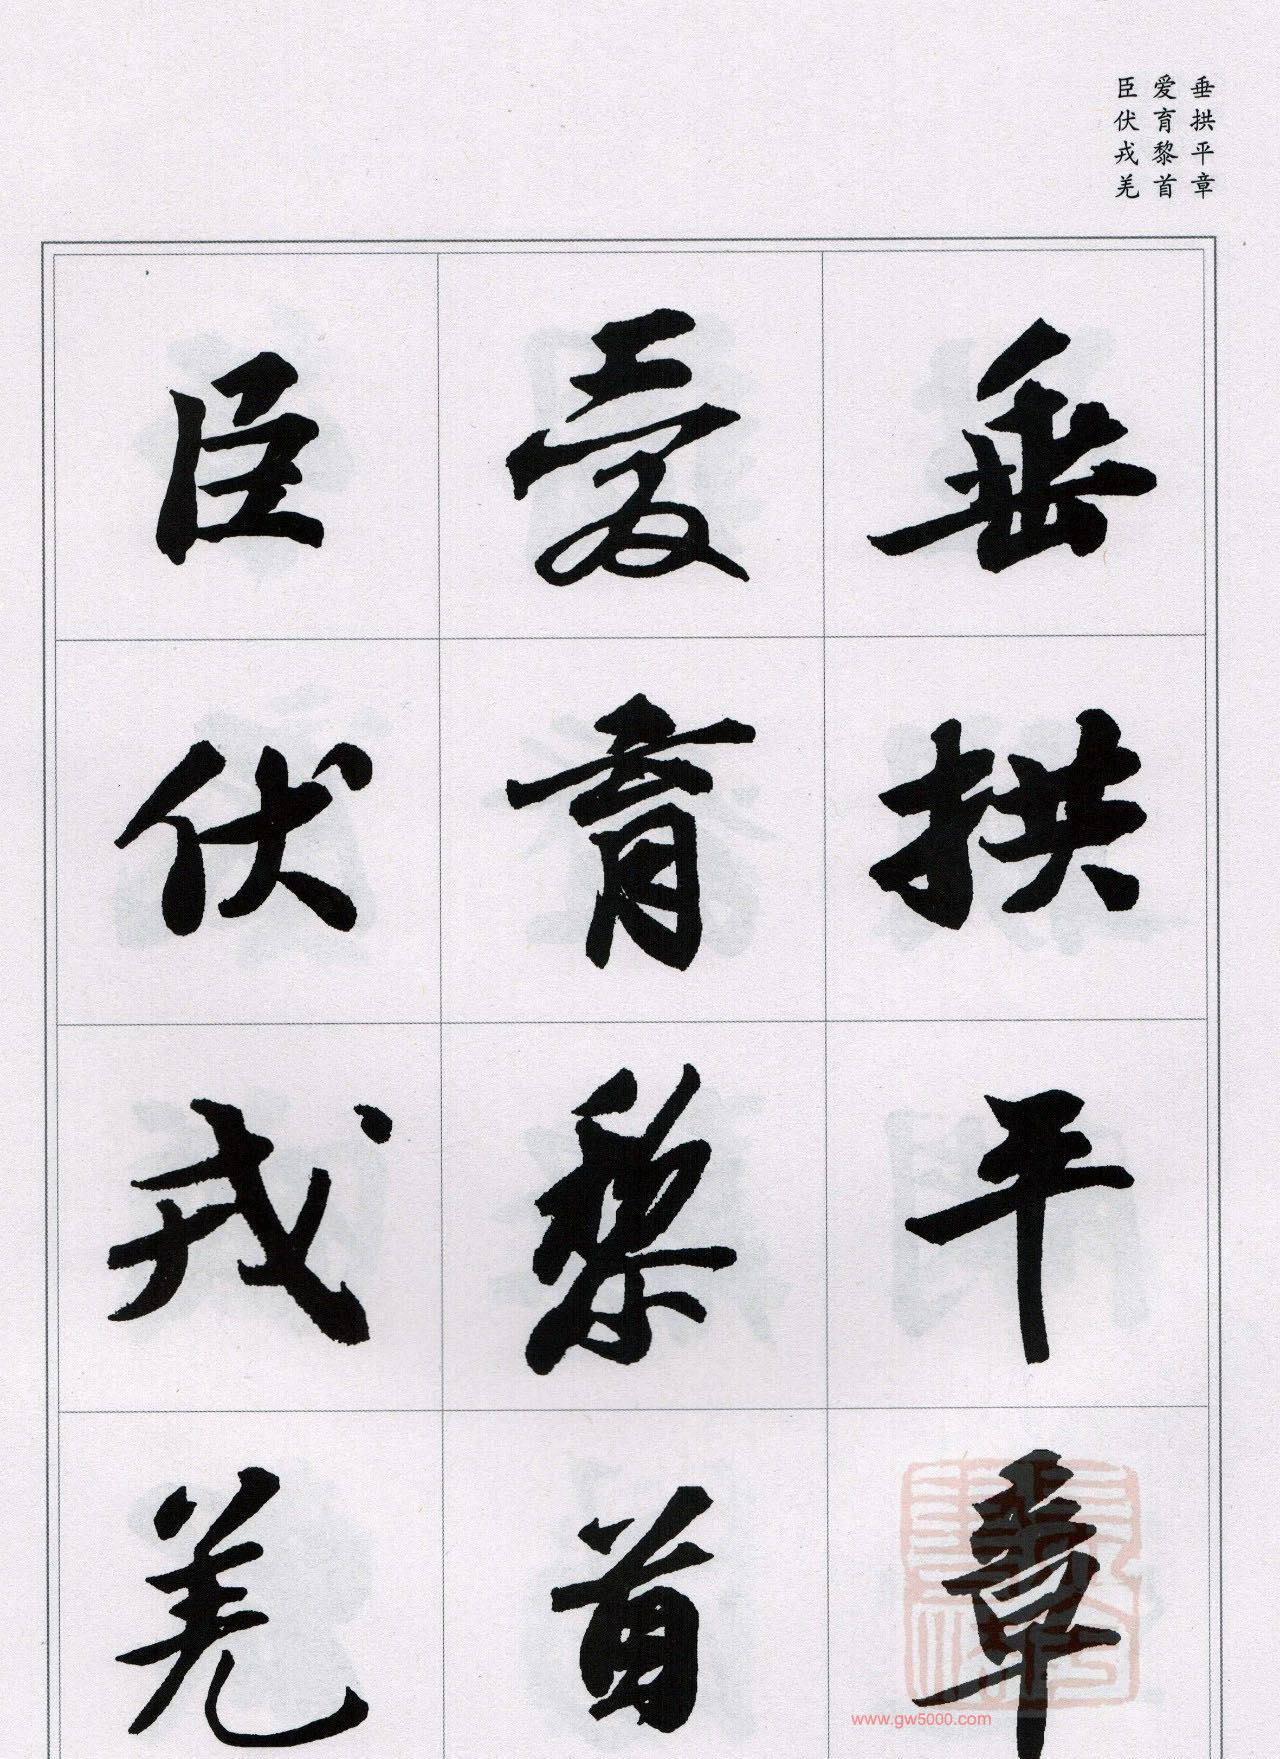 垂拱平章
爱育黎首
臣伏戎羌
垂拱平章
爱育黎首
臣伏戎羌
www.gw5000.com